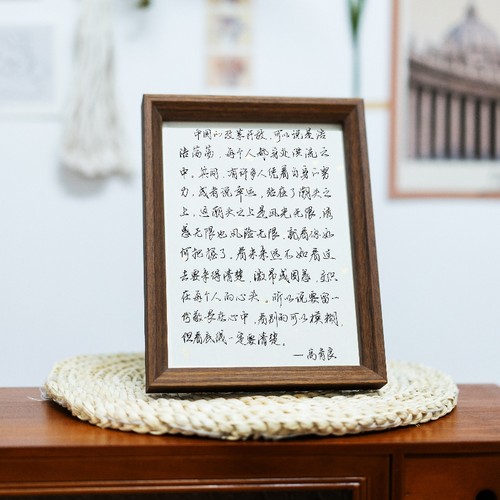 中国的改革开放，可以说是浩
浩荡荡，每个人都身处洪流之
中，其间，有许多人凭着自身的努
力，或者说幸运，站在了潮头之
上，这潮头之上是风光无限，诱
惑无限也风险无限，就看你如
何把握了，看未来远不如看过
去要来得清楚，激昂或困惑，交织
在每个人的心头，所以说要留一
份敬畏在心中，看别的可以模糊，
但看底线一定要清楚。
—高育良